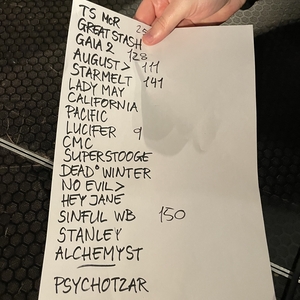 TS McR
GREAT STASH
GAIA 2 128
AUGUST> 111
STARMELT 141
LADY MAY
CALIFORNIA
PACIFIC
LUCIFER 9
CMC
SUPERSTOOGE
DEAD° WINTER
NO EVIL>
HEY JANE
SINFUL WB 150
STANLEY
ALCHEMYST
PSYCHOTZAR